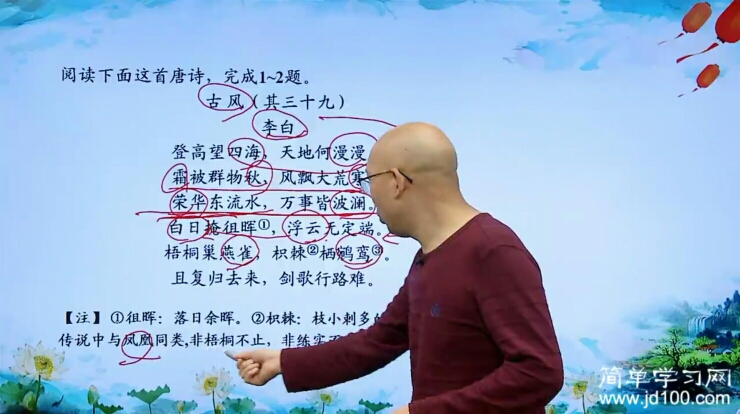 阅读下面这首唐诗，完成1~2题。
古风（其三十九）
李白
登高望四海，天地何漫漫
霜被群物秋，风飘大荒寒
荣华东流水，万事皆波澜。
白日掩徂晖①，浮云无定端。
梧桐巢燕雀，枳棘②栖鸳鸾③。
且复归去来，剑歌行路难。
【注】①徂晖：落日余晖。②枳棘：枝小刺多的
传说中与凤凰同类,非梧桐不止，非练实不
简单学习网
www.jd100.com